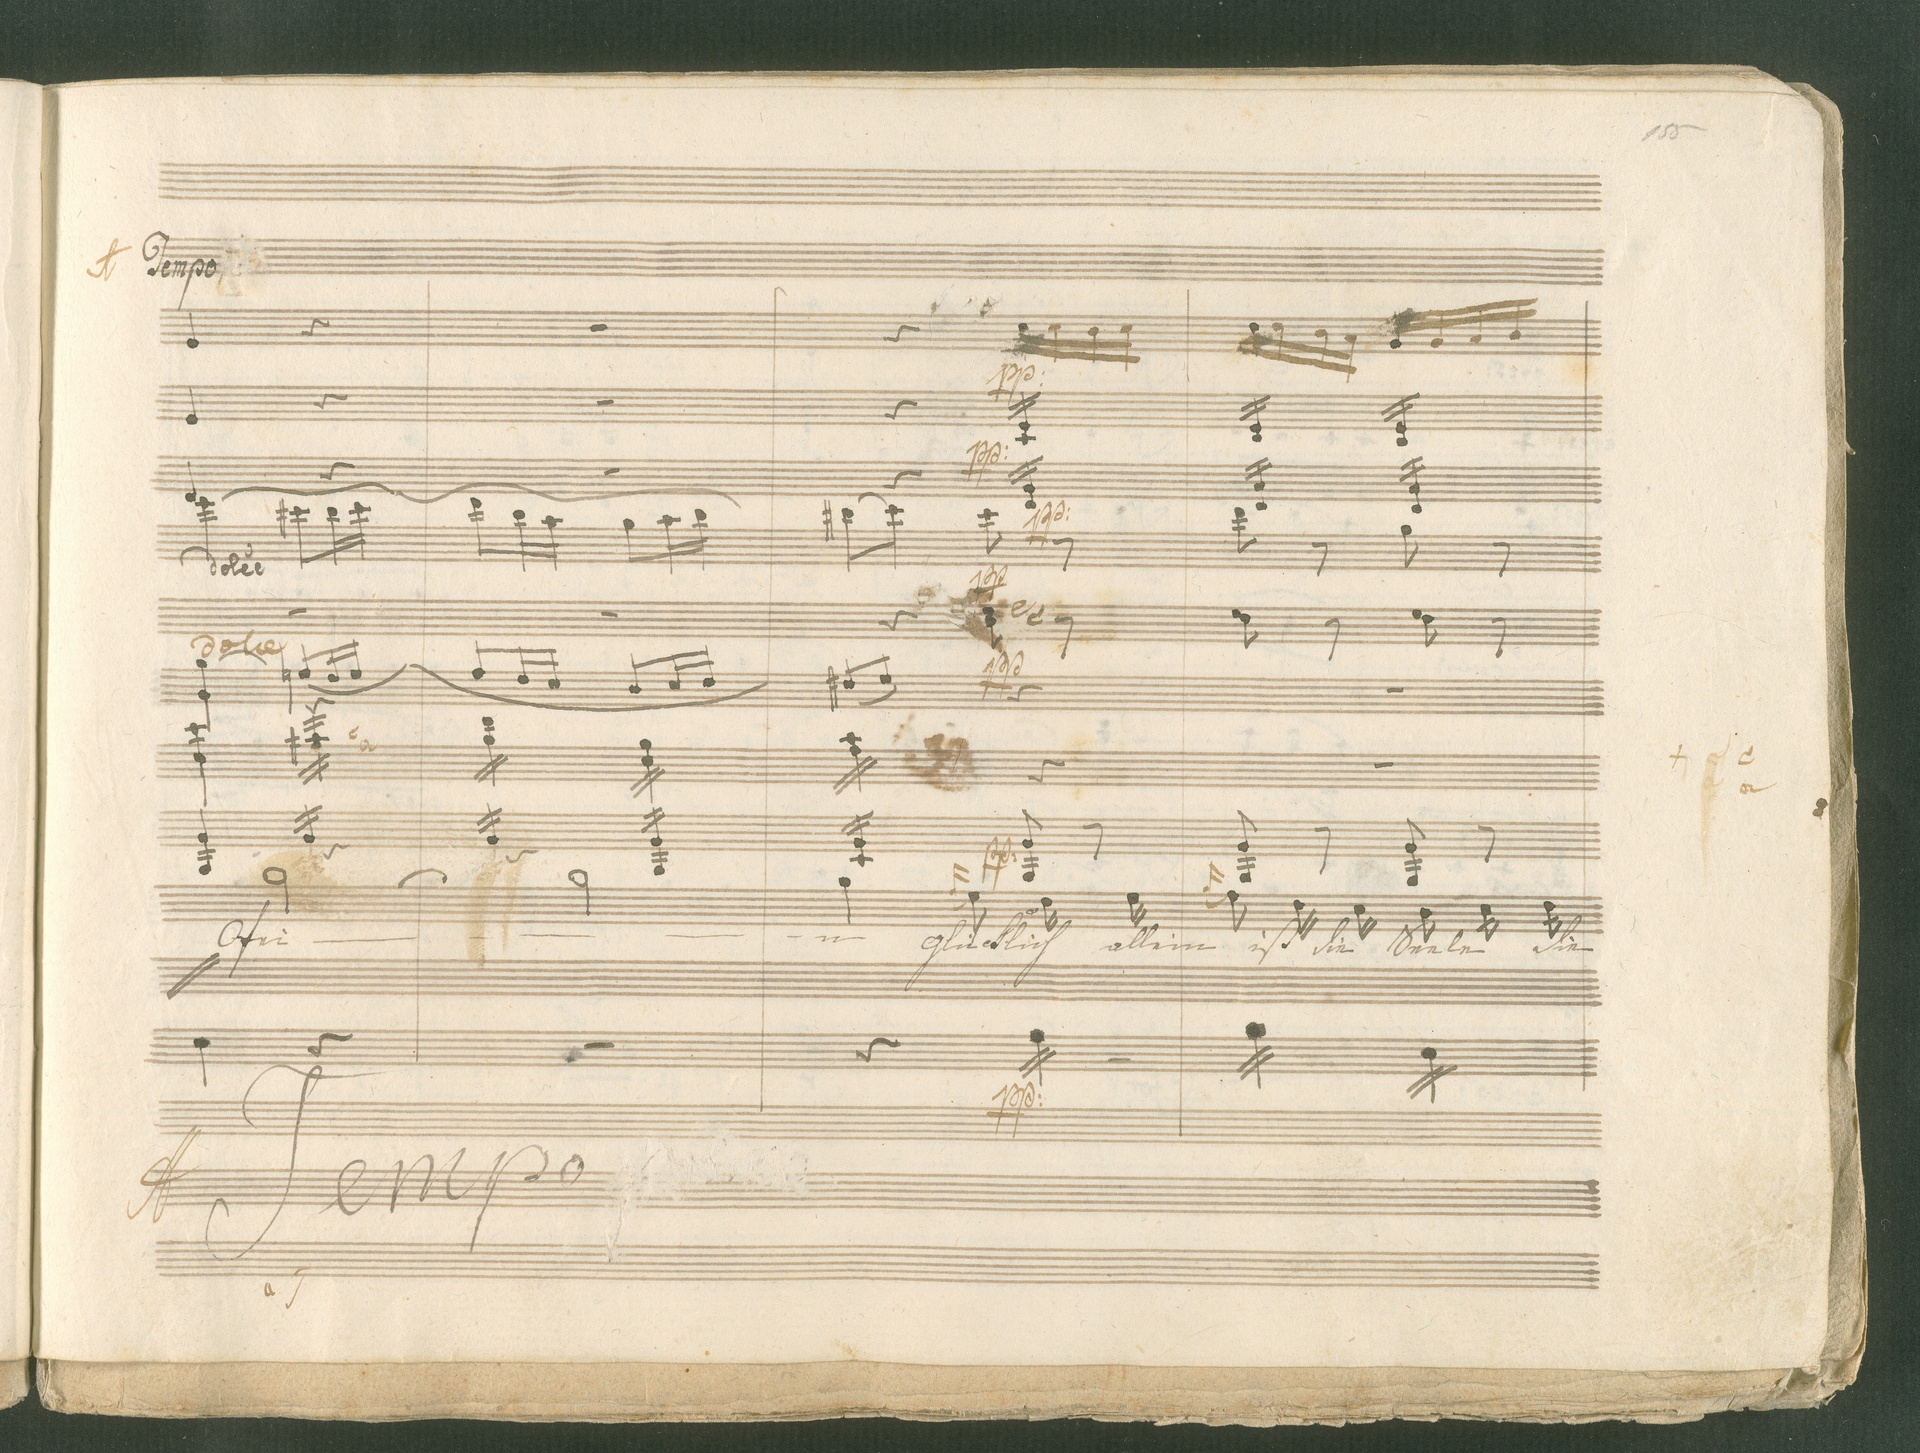 155
A Tempo
pp:
pp:
pp:
dolce
pp
dolce
pp
c
a
c
a
pp:
glücklich allein ist die Seele die
pp:
A Tempo
a T